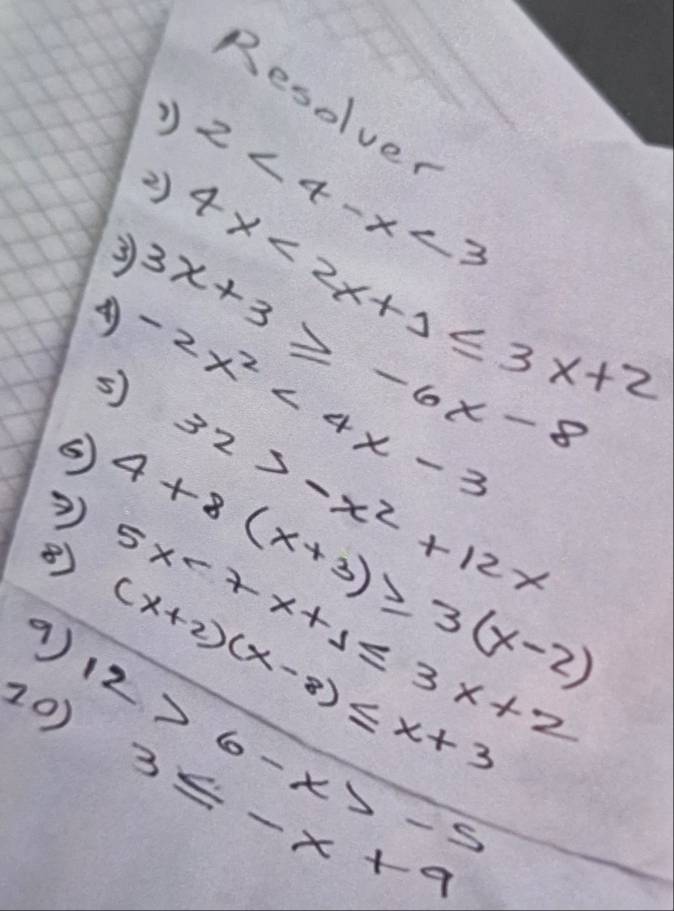 Resolver
1) 2 < 4 - x < 3
2) 4x < 2x + 1 ≤ 3x + 2
3) 3x + 3 ≥ -6x - 8
4) -2x² < 4x - 3
5) 32 > -x² + 12x
6) 4 + 8(x + 3) ≥ 3(x - 2)
7) 5x < 7x + 1 ≤ 3x + 2
8) (x + 2)(x - 8) ≤ x + 3
9) 12 > 6 - x > -5
10) 3 ≤ -x + 9